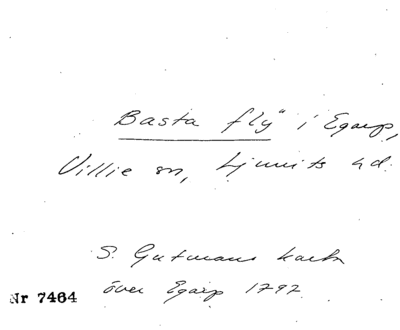 Basta fly" i Egarp,
Villie sn, Ljunits hd.
S. Gutmans karta
över Egarp 1792.
Nr 7464